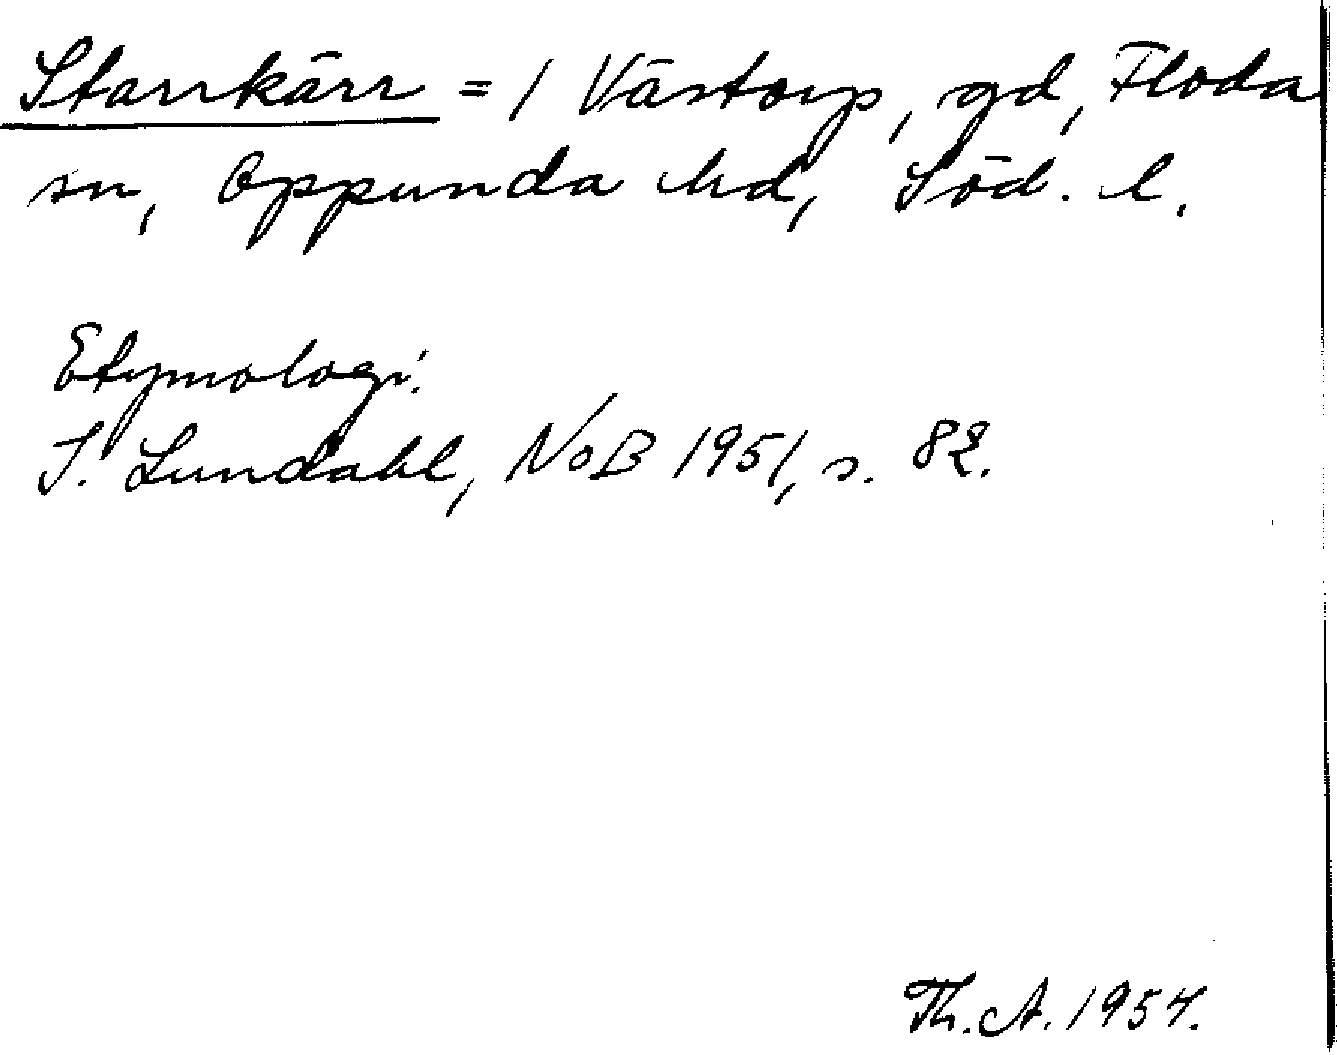 Starrkärr = 1 Västorp, gd, Floda
sn, Oppunda hd, Söd. l.
Etymologi.
I. Lundahl, NoB 1951, s. 82.
Th. A. 1954.